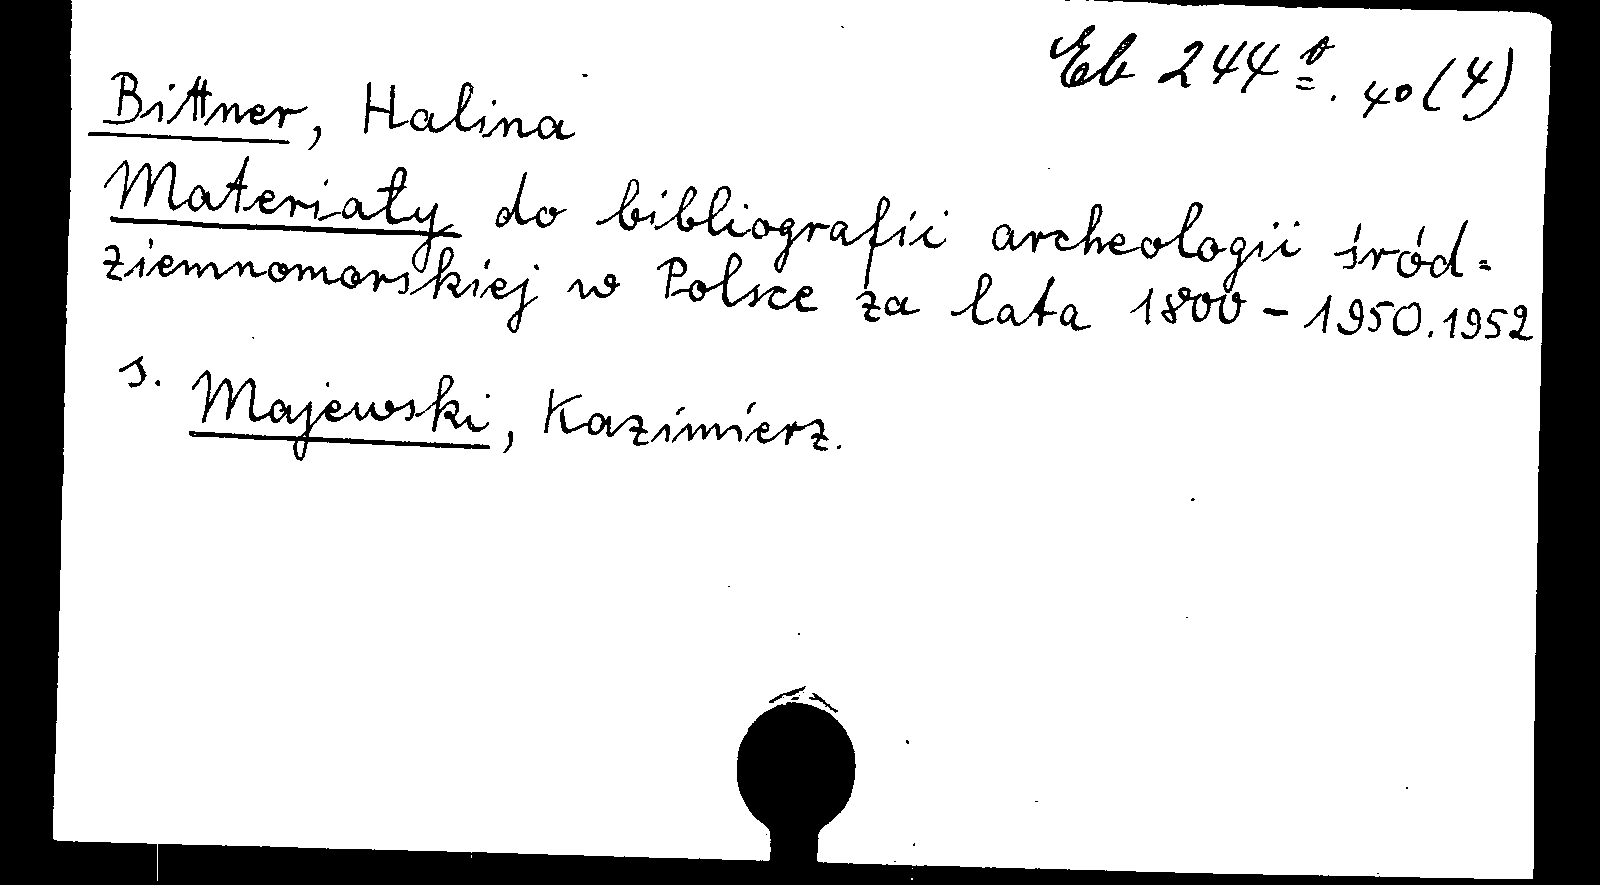 Eb 244 º. 40 (4)
Bittner, Halina
Materiały do bibliografii archeologii śród=
ziemnomorskiej w Polsce za lata 1800 - 1950. 1952
s. Majewski, Kazimierz.